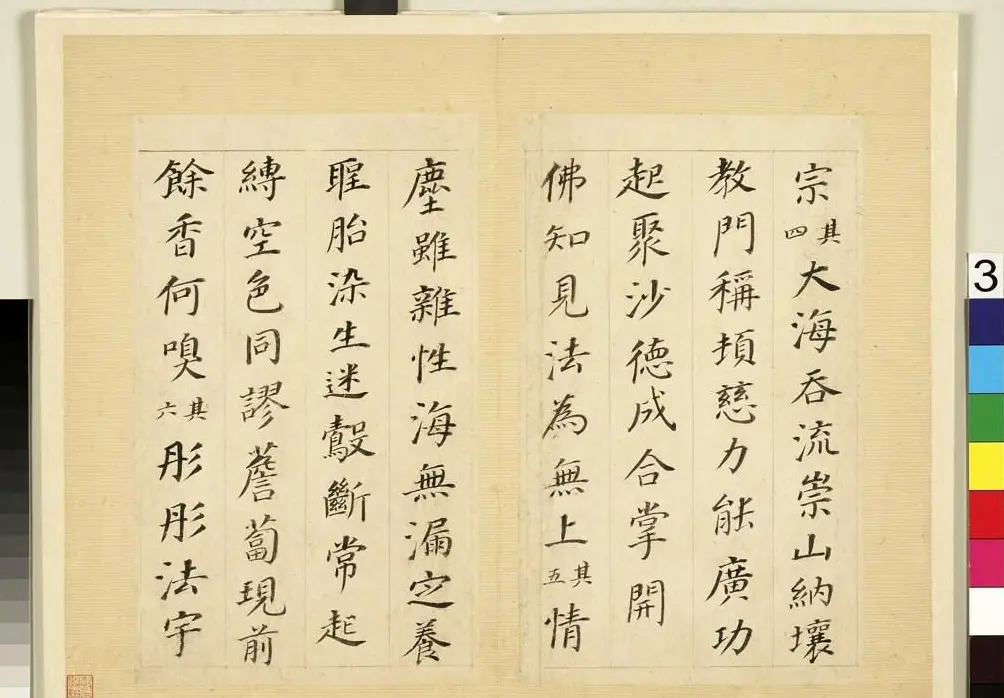 宗其四大海吞流崇山納壤
教門稱頓慈力能廣功
起聚沙德成合掌開
佛知見法為無上其五情
塵雖雜性海無漏定養
聖胎染生迷鷇斷常起
縛空色同謬薝蔔現前
餘香何嗅其六彤彤法宇
3